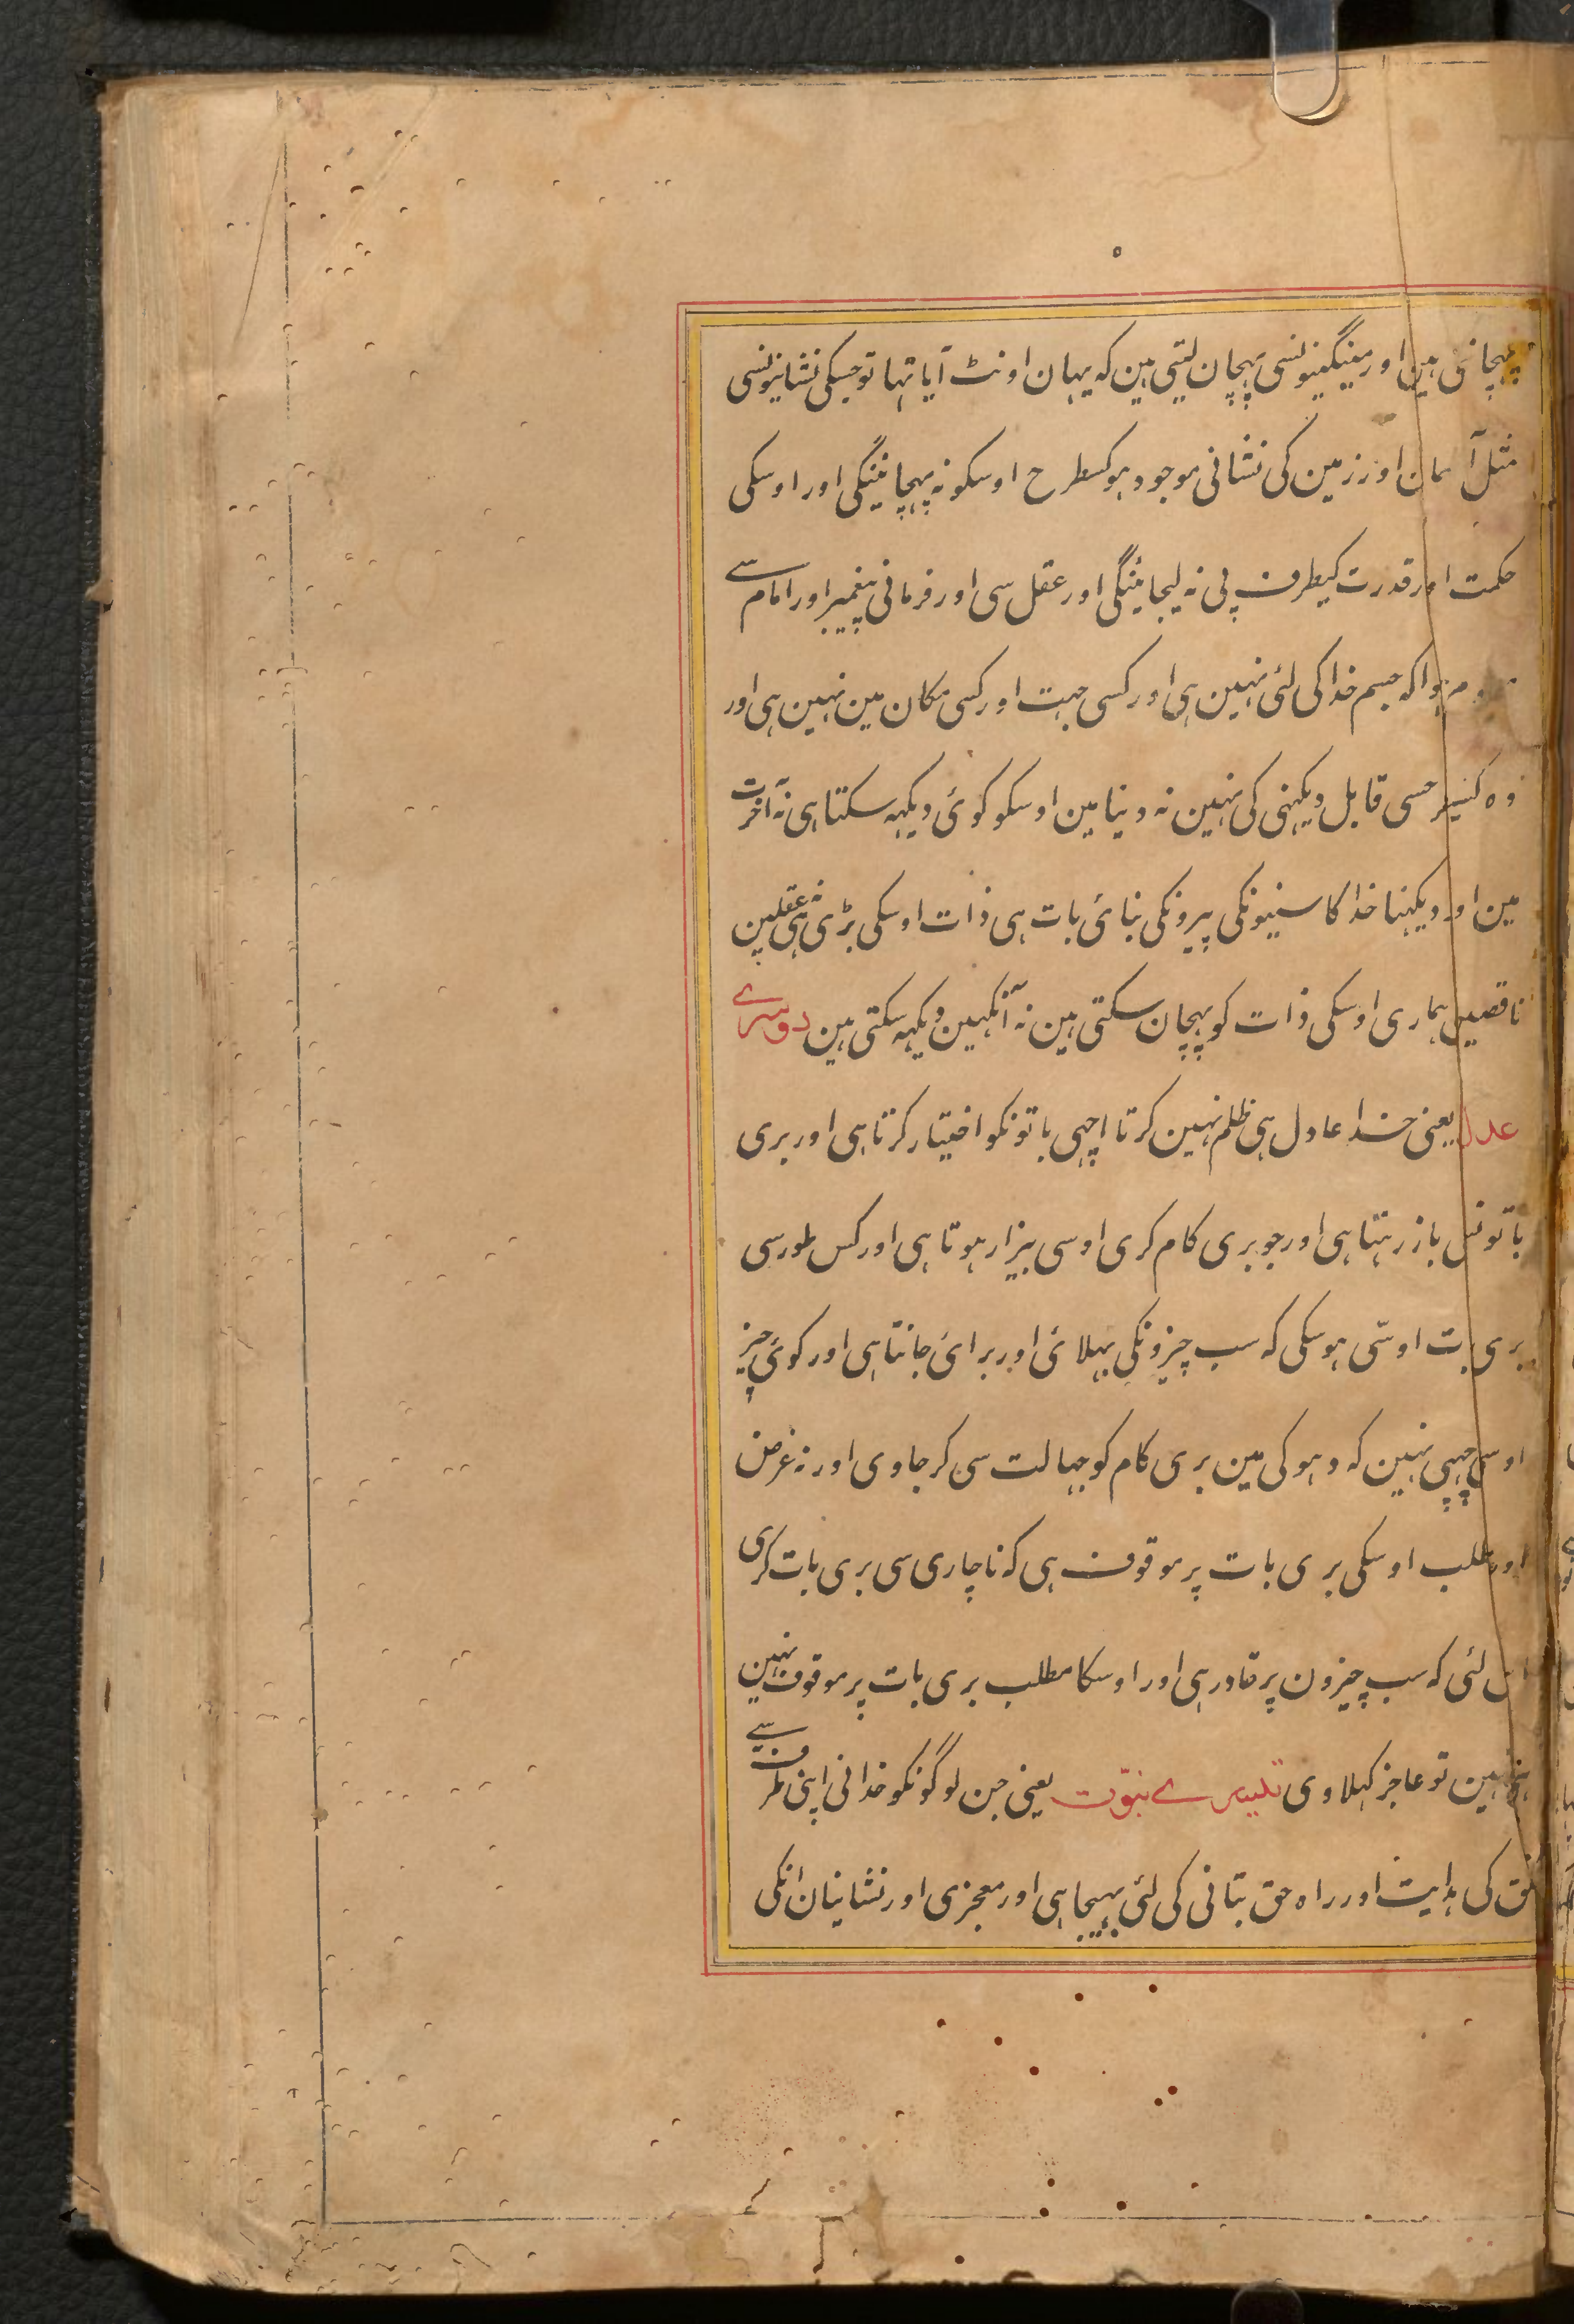 پہچانتی ہین اور مینگنیونسی پہچان لیتی ہین کہ یہان اونٹ آیا تہا تو جسکی نشانیونسی
مثل آسمان اور زمین کی نشانی موجود ہو کسطرح اوسکو نہ پہچانینگی اور اوسکی
حکمت اور قدرت کیطرف پی نہ لیجائینگی اور عقل سی اور فرمانی پیغمبر اور امام سے
ہوا کہ جسم خدا کی لئی نہین ہی اور کسی جہت اور کسی مکان مین نہین ہی اور
وہ کسیطرحسی قابل دیکہنی کی نہین نہ دنیا مین اوسکو کوئی دیکہہ سکتا ہی نہ آخرت
مین اور دیکہنا خدا کا سنیونکی پیرونکی بنائی بات ہی ذات اوسکی بڑی ہی نہ عقلین
ناقصین ہماری اوسکی ذات کو پہچان سکتی ہین نہ آنکہین دیکہہ سکتی ہین دوسرے
عدل یعنی خدا عادل ہی ظلم نہین کرتا اچہی باتونکو اختیار کرتا ہی اور بری
باتونسی باز رہتا ہی اور جو بری کام کری اوسی بیزار ہوتا ہی اور کس طور سی
بری بات اوسی ہوسکی کہ سب چیزونکی بہلائی اور برائی جانتا ہی اور کوئی چیز
اوسی چہپی نہین کہ دہوکی مین بری کام کو جہالت سی کر جاوی اور نہ غرض
اور مطلب اوسکی بری بات پر موقوف ہی کہ ناچاری سی بری بات کری
اس لئی کہ سب چیزون پر قادر ہی اور اوسکا مطلب بری بات پر موقوف نہین
نہین تو عاجز کہلاوی تیسرے نبوّت یعنی جن لوگونکو خدا نی اپنی طرف سے
خلق کی ہدایت اور راہ حق بتانی کی لئی بہیجا ہی اور معجزی اور نشانیان انکی